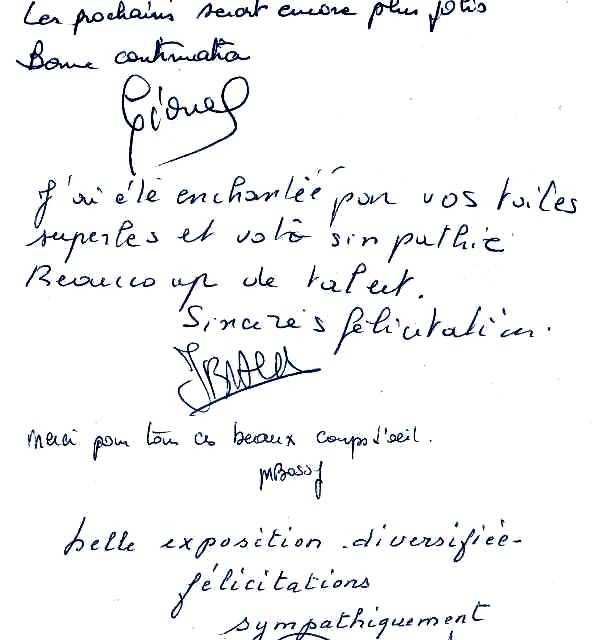 Les prochains seront encore plus jolis
Bonne continuation
Lionel
J'ai été enchantéé par vos toiles
superbes et votre simpathie
Beaucoup de talent.
Sincères félicitation.
Merci pour tous ces beaux coups d'oeil.
MBossy
belle exposition diversifiée-
félicitations
sympathiquement